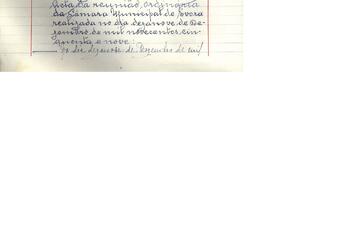 Acta da reunião ordinária
da Câmara Municipal de Évora
realizada no dia dezanove de De-
zembro de mil novecentos cin-
quenta e nove:
No dia dezanove de Dezembro de mil